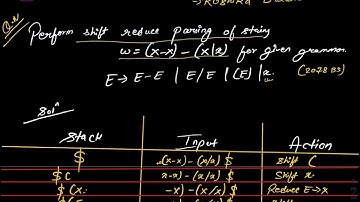 Perform shift reduce parsing of string
w = (x-x) - (x/x) for given grammar.
E → E-E | E/E | (E) | x. (2078 BS)
Solⁿ
Stack Input Action
$ (x-x) - (x/x) $ Shift (
$ ( x-x) - (x/x) $ Shift x
$ (x -x) - (x/x) $ Reduce E→x